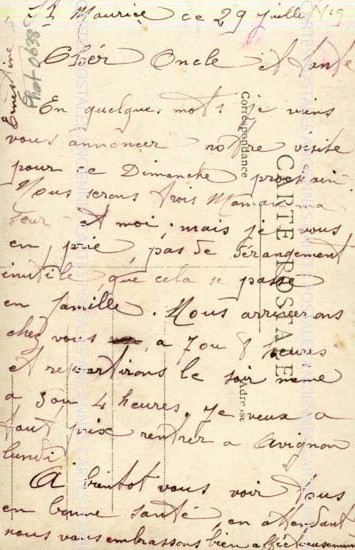 St Maurice ce 29 juillet
Chér Oncle et tante
En quelques mots je viens
vous annoncer notre visite
pour ce Dimanche prochain
Nous serons trois Maman ma
seur et moi; mais je vous
en prie, pas de dérangement
inutile que cela se passe
en famille. Nous arriverons
chez vous a 7 ou 8 heures
et repartirons le soir même
a 3 ou 4 heures. Je veux a
tout prix rentrer a Avignon
lundi
A bientot vous voir tous
en bonne santé, en attendant
nous vous embrassons bien affectueusement
Ernestine
Phot 0638
CARTE POSTALE
Correspondance
Adresse